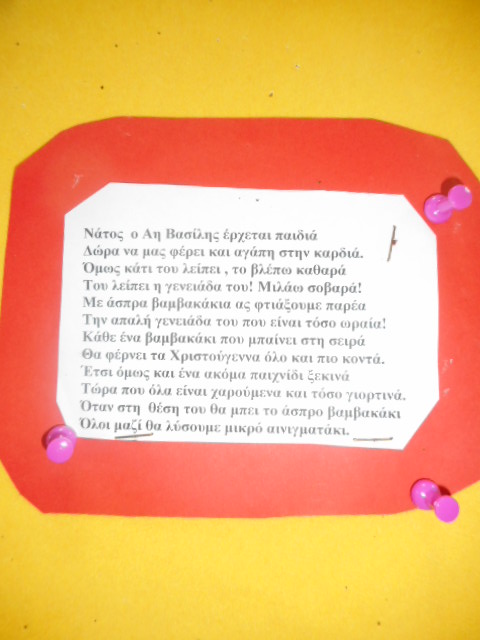 Νάτος ο Αη Βασίλης έρχεται παιδιά
Δώρα να μας φέρει και αγάπη στην καρδιά.
Όμως κάτι του λείπει , το βλέπω καθαρά
Του λείπει η γενειάδα του! Μιλάω σοβαρά!
Με άσπρα βαμβακάκια ας φτιάξουμε παρέα
Την απαλή γενειάδα του που είναι τόσο ωραία!
Κάθε ένα βαμβακάκι που μπαίνει στη σειρά
Θα φέρνει τα Χριστούγεννα όλο και πιο κοντά.
Έτσι όμως και ένα ακόμα παιχνίδι ξεκινά
Τώρα που όλα είναι χαρούμενα και τόσο γιορτινά.
Όταν στη θέση του θα μπει το άσπρο βαμβακάκι
Όλοι μαζί θα λύσουμε μικρό αινιγματάκι.